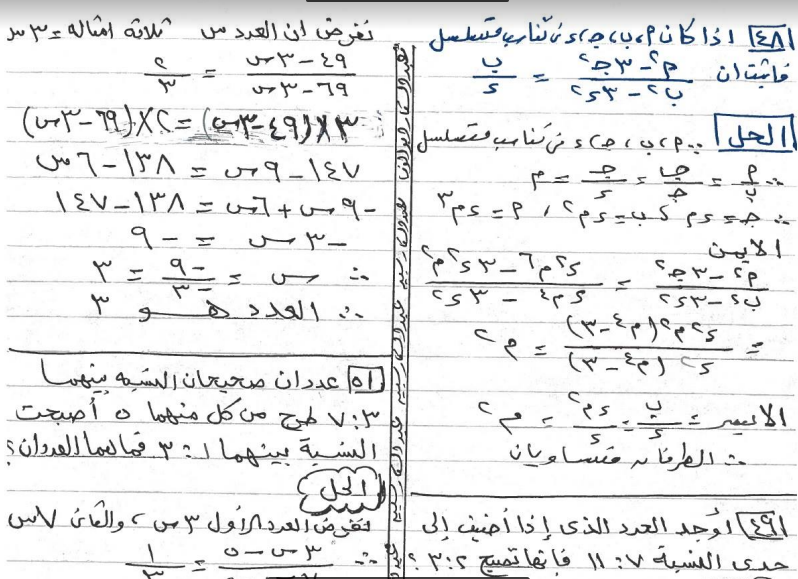 [٤٨] اذا كان م، ب، ج، د فى تناسب متسلسل
فاثبت ان (م٢ - ٣ج٢)/(ب٢ - ٣د٢) = ب/د
الحل ∵ م، ب، ج، د فى تناسب متسلسل
∴ م/ب = ب/ج = ج/د = م
∴ ج = دم ، ب = دم٢ ، م = دم٣
الايمن
(م٢ - ٣ج٢)/(ب٢ - ٣د٢) = (د٢م٦ - ٣د٢م٢)/(د٢م٤ - ٣د٢)
= د٢م٢(م٤ - ٣)/د٢(م٤ - ٣) = م٢
الايسر = ب/د = دم٢/د = م٢
∴ الطرفان متساويان
[٤٩] أوجد العدد الذى إذا أضيف إلى
حدى النسبة ٧ : ١١ فإنها تصبح ٢ : ٣ ؟
نفرض ان العدد س ثلاثة امثاله = ٣س
(٤٩ - ٣س)/(٦٩ - ٣س) = ٢/٣
٣ × (٤٩ - ٣س) = ٢ × (٦٩ - ٣س)
١٤٧ - ٩س = ١٣٨ - ٦س
-٩س + ٦س = ١٣٨ - ١٤٧
-٣س = -٩
∴ س = -٩/-٣ = ٣
∴ العدد هو ٣
[٥١] عددان صحيحان النسبة بينهما
٣ : ٧ طرح من كل منهما ٥ أصبحت
النسبة بينهما ١ : ٣ فما هما العددان ؟
الحل
نفرض العدد الأول ٣س ، والثانى ٧س
∴ (٣س - ٥)/ = ١/٣